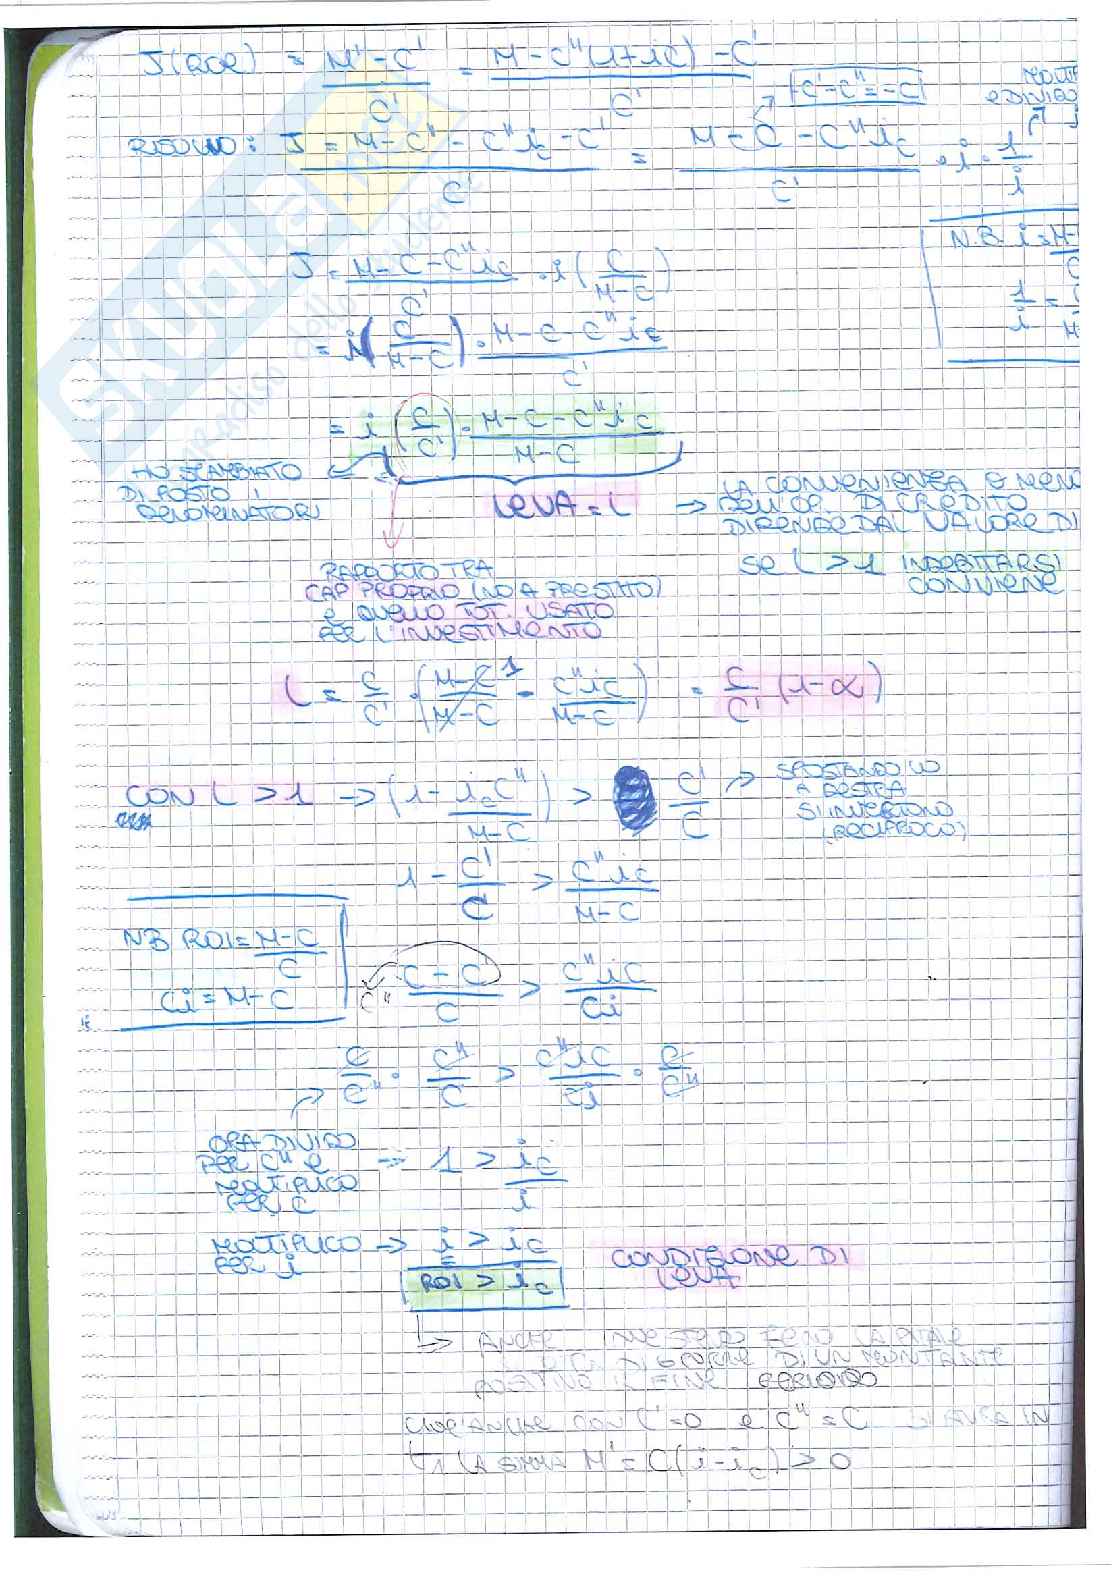 J(ROE) = M' - C' / C' = M - C''(1+ic) - C' / C'
-C'-C'' = -C
E DIVIDO
RISOLVO: J = M - C'' - C'' ic - C' / C' = M - C - C'' ic / C' · i · 1/i
N.B. i = M-
1/i =
J = M - C - C'' ic / C' · i (C / M-C)
= i (C / M-C) · M - C - C'' ic / C'
= i (C / C') · M - C - C'' ic / M - C
HO SCAMBIATO
DI POSTO I
DENOMINATORI
LEVA = L → LA CONVENIENZA O MENO
DELL'OP. DI CREDITO
DIPENDE DAL VALORE DI
SE L > 1 INDEBITARSI
CONVIENE
RAPPORTO TRA
CAP PROPRIO (NO A PRESTITO)
E QUELLO TOT. USATO
PER L'INVESTIMENTO
L = C / C' · (M-C / M-C 1 - C'' ic / M-C) = C / C' (1-α)
CON L > 1 → (1 - ic C'' / M-C) > C' / C → SPOSTANDOLO
A DESTRA
SI INVERTONO
(RECIPROCO)
1 - C' / C > C'' ic / M-C
NB ROI = M-C / C
Ci = M-C
C'' C - C' / C > C'' ic / Ci
C / C'' · C'' / C > C'' ic / Ci · C / C''
ORA DIVIDO
PER C'' E
MOLTIPLICO
PER C
→ 1 > ic / i
MOLTIPLICO → i > ic
PER i
ROI > ic
CONDIZIONE DI
LEVA
→ ANCHE
DI UN MONTANTE
POSITIVO FINE PERIODO
CIOÈ ANCHE CON C'=0 e C''=C IN
t1 LA SOMMA M' = C(i-ic) > 0
SKUOLA.net